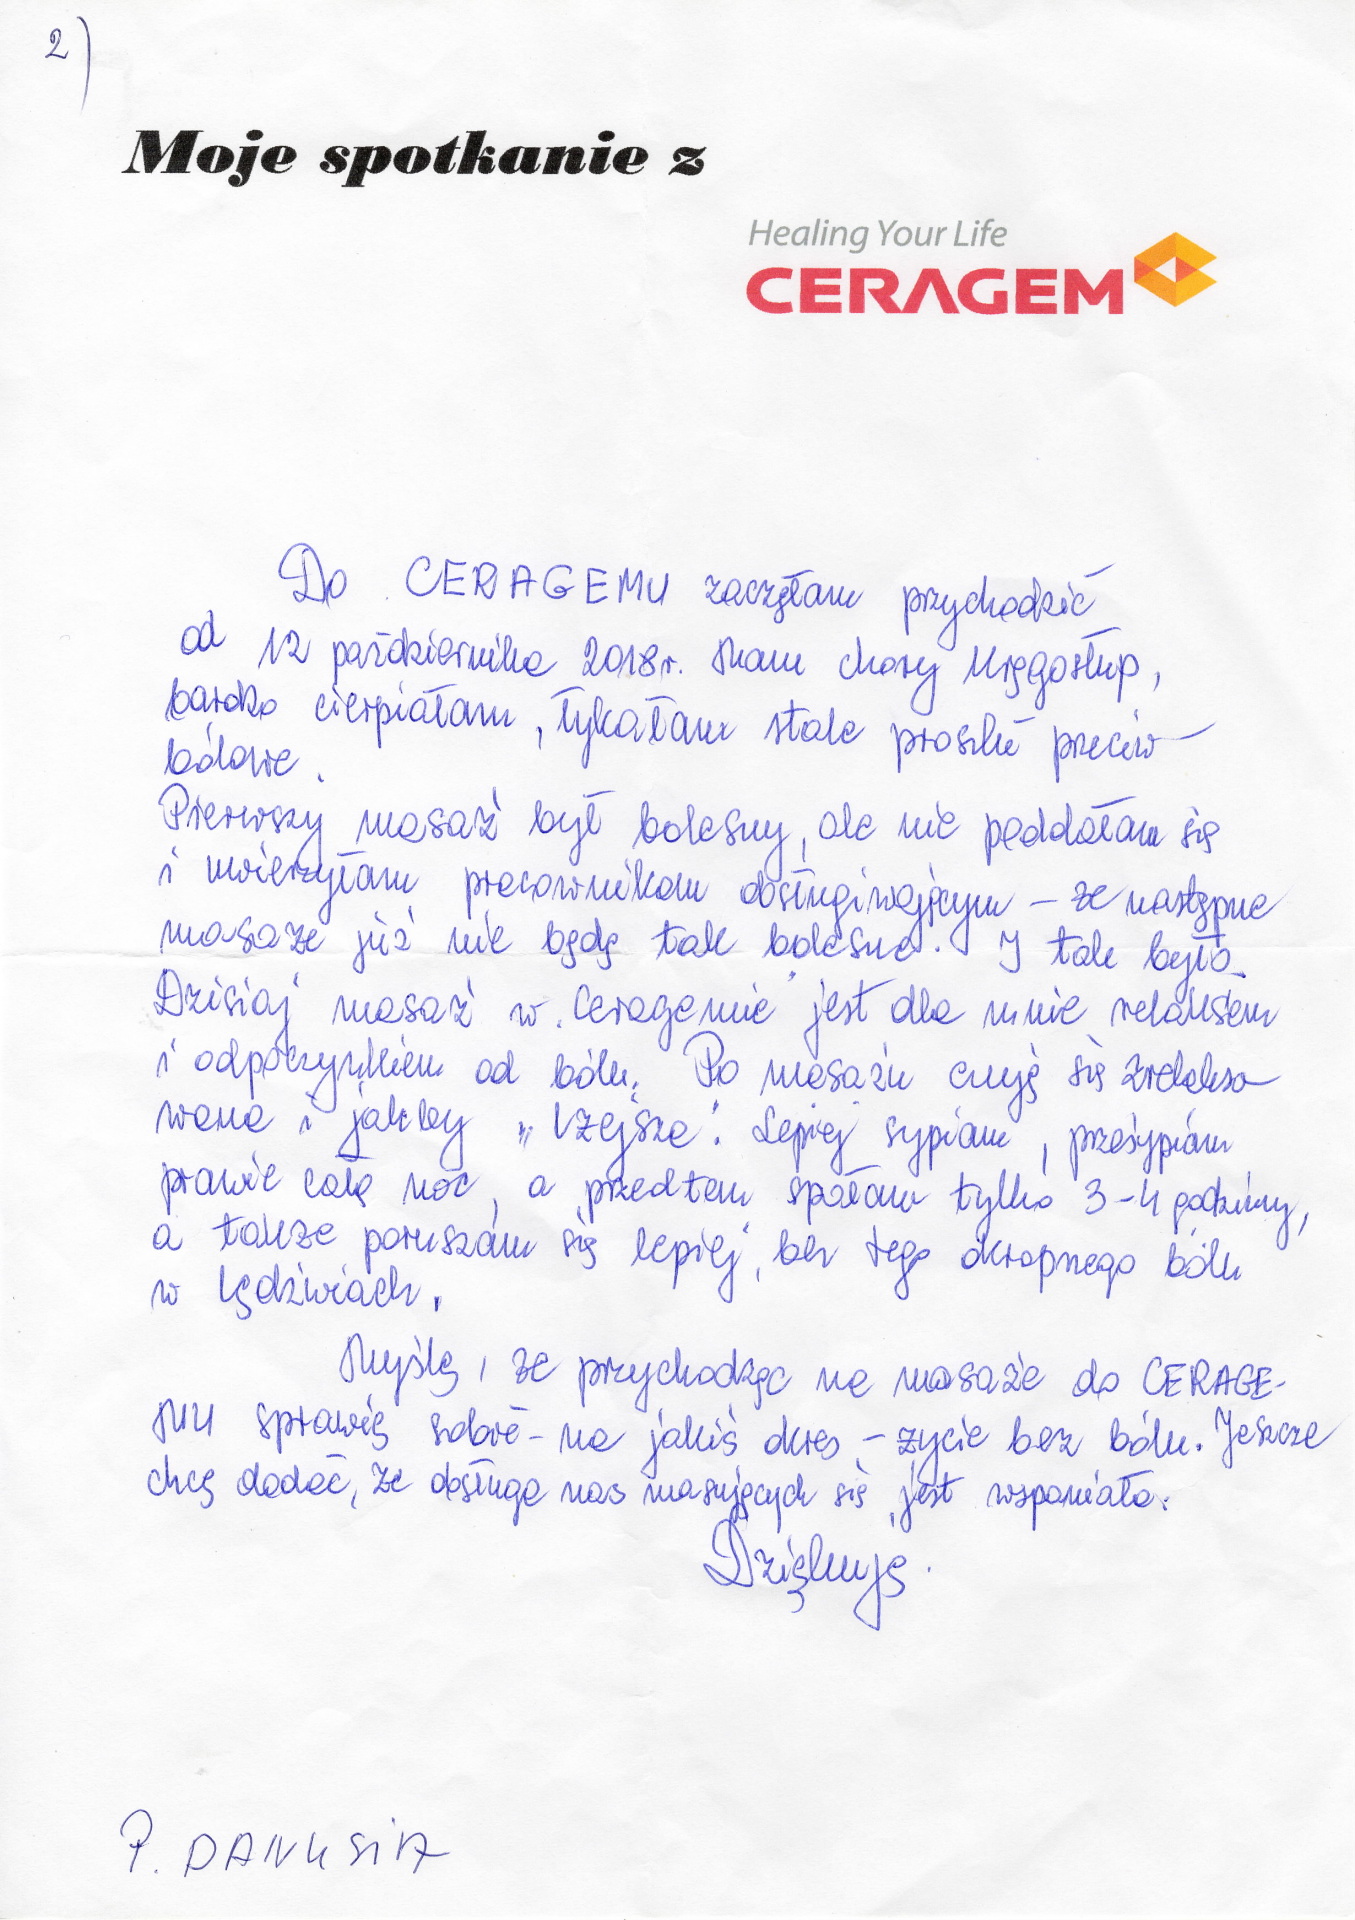 2)
Moje spotkanie z
Healing Your Life
CERAGEM
Do CERAGEMU zaczęłam przychodzić
od 12 października 2018r. Mam chory kręgosłup,
bardzo cierpiałam, łykałam stale proszki przeciw
bólowe.
Pierwszy masaż był bolesny, ale nie poddałam się
i uwierzyłam pracownikom obsługiwającym – że następne
masaże już nie będą tak bolesne. I tak było.
Dzisiaj masaż w „Ceragemie" jest dla mnie relaksem
i odpoczynkiem od bólu. Po masażu czuję się zrelakso
wana i jakby „lżejsza". Lepiej sypiam, przesypiam
prawie całą noc, a przedtem spałam tylko 3-4 godziny,
a także poruszam się lepiej, bez tego okropnego bólu
w lędźwiach.
Myślę, że przychodząc na masaże do CERAGE-
MU sprawię sobie – na jakiś okres – życie bez bólu. Jeszcze
chcę dodać, że obsługa nas masujących się, jest wspaniała.
Dziękuję.
P. DANUSIA